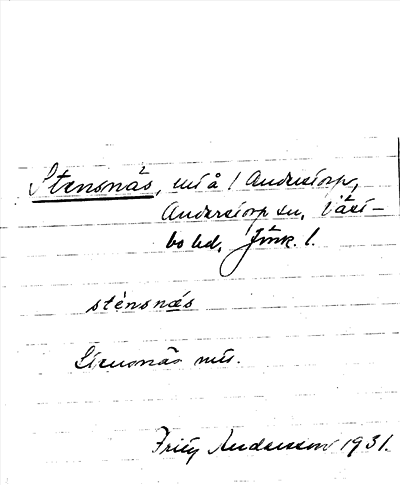 Stensnäs, uti å / Anderstorp,
Anderstorp sn, Väst-
bo hd, Jönk. l.
stènsnäs
Stensnäs
Andersson 1931.